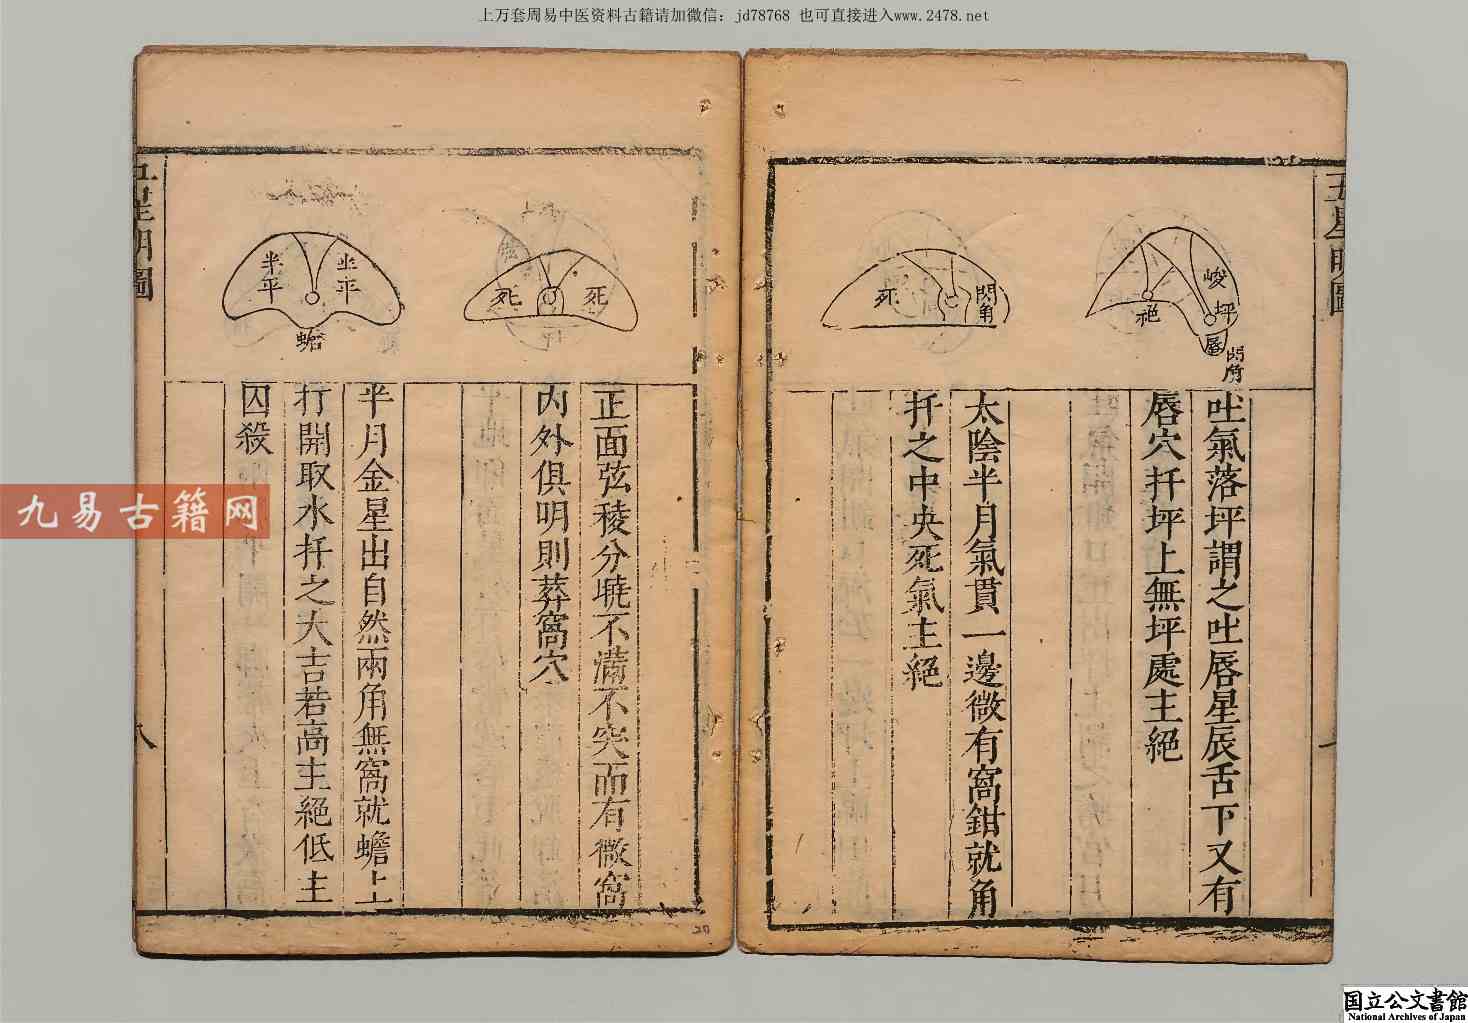 上万套周易中医资料古籍请加微信：jd78768 也可直接进入www.2478.net
五星明圖
峻
坪
絕
唇
閃角
吐氣落坪謂之吐唇星辰舌下又有
唇穴扦坪上無坪處主絕
死
閃角
太陰半月氣貫一邊微有窩鉗就角
扦之中央死氣主絕
死
死
正面弦稜分曉不滿不突而有微窩
內外俱明則葬窩穴
半平
半平
蟾
半月金星出自然兩角無窩就蟾上
打開取水扦之大吉若高主絕低主
囚殺
五星明圖
八
20
九易古籍网
国立公文書館
National Archives of Japan